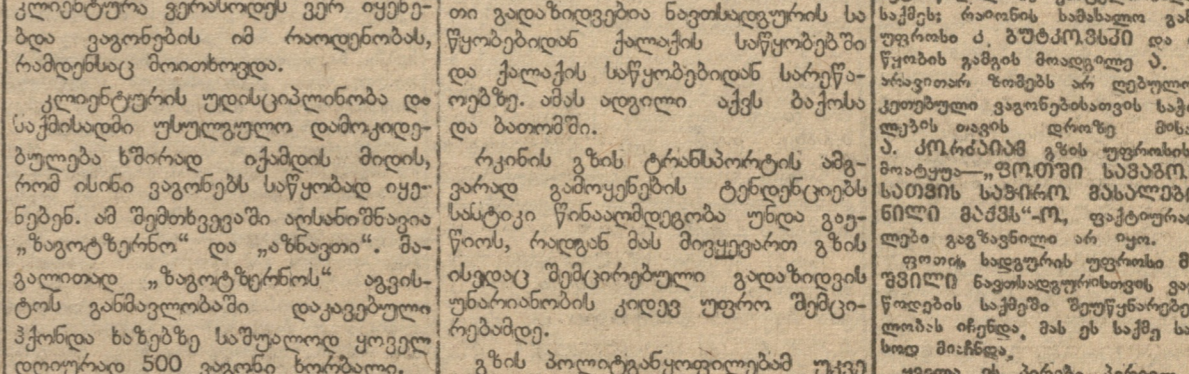 კლიენტურა ვერასოდეს ვერ იყენე-
ბდა ვაგონების იმ რაოდენობას,
რამდენსაც მოითხოვდა.
კლიენტურის უდისციპლინობა და
საქმისადმი უსულგულო დამოკიდე-
ბულება ხშირად იქამდის მიდის,
რომ ისინი ვაგონებს საწყობად იყე-
ნებენ. ამ შემთხვევაში აღსანიშნავია
„ზაგოტზერნო“ და „აზნავთი“. მა-
გალითად „ზაგოტზერნოს“ აგვის-
ტოს განმავლობაში დაკავებული
ჰქონდა ხაზებზე საშუალოდ ყოველ
დღიურად 500 ვაგონი ხორბალი.
თი გადაზიდვებია ნავთსადგურის სა
წყობებიდან ქალაქის საწყობებში
და ქალაქის საწყობებიდან სარეწა-
ოებზე. ამას ადგილი აქვს ბაქოსა
და ბათომში.
რკინის გზის ტრანსპორტის ამგ-
ვარად გამოყენების ტენდენციებს
სასტიკი წინააღმდეგობა უნდა გაე-
წიოს, რადგან მას მივყევართ გზის
ისედაც შემცირებული გადაზიდვის
უნარიანობის კიდევ უფრო შემცი-
რებამდე.
გზის პოლიტგანყოფილებამ უკვე
საქმეს; რაიონის სამასალო
უფროსი ა. ბუტკოვსკი და
წყობის გამგის მოადგილე ა.
არავითარ ზომებს არ
კეთებული ვაგონებისათვის
ლების თავის დროზე
ა. კორძაიამ გზის
მოატყუა—„ფოთში
სათვის საჭირო
ნილი მაქვს“-ო,
ლები გაგზავნილი არ იყო.
ფოთის სადგურის უფროსი
შვილი ნავთსადგურისთვის
წოდების საქმეში
ლობას იჩენდა, მას ეს საქმე
სოდ მიაჩნდა.